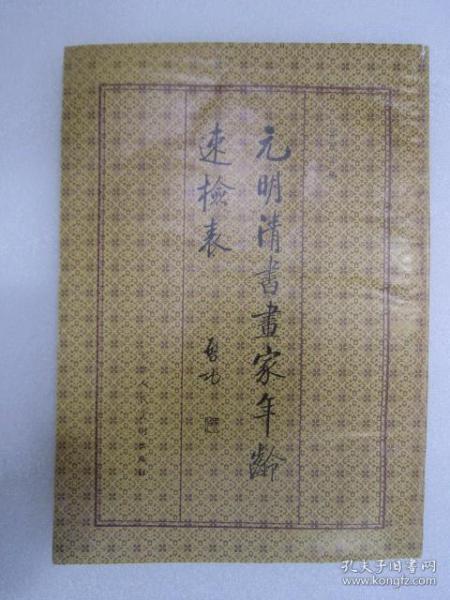 元明清書畫家年齡
速檢表
啓功
孔夫子旧书网
www.kongfz.com